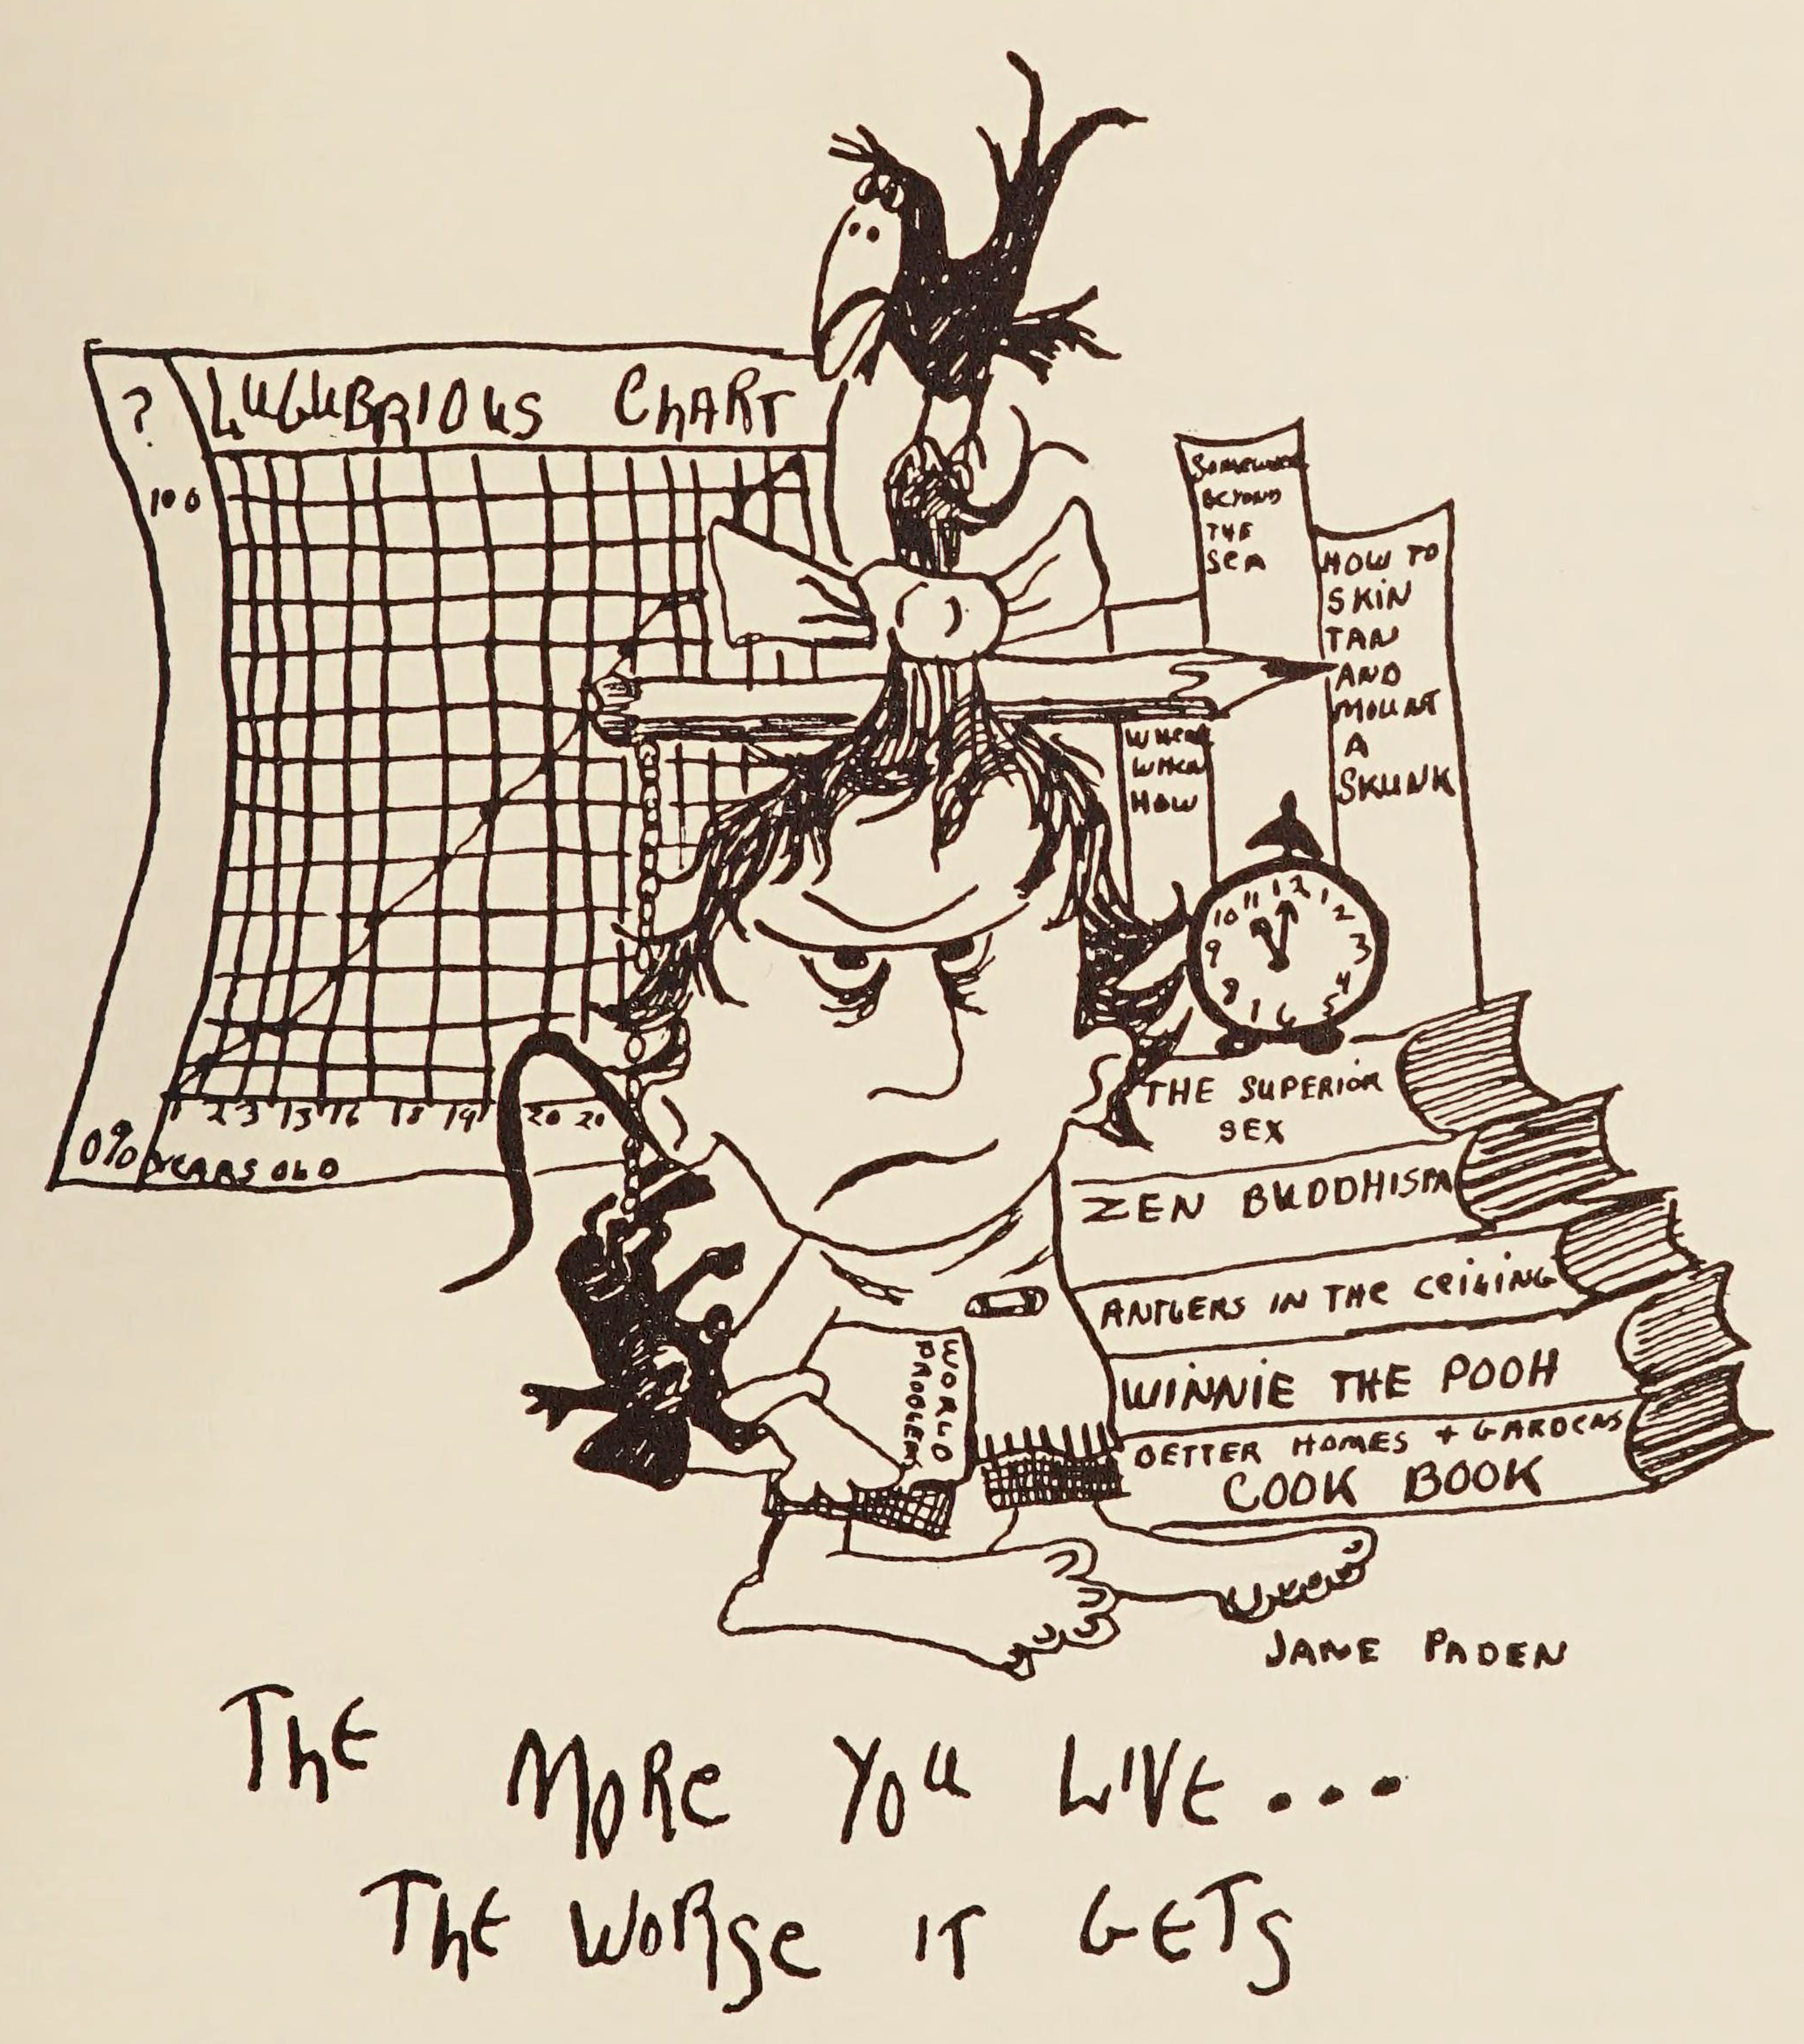 ?
LUGUBRIOUS CHART
100
0%
1 2 3 13 16 18 19 20 20
YEARS OLD
BEYOND
THE
SEA
HOW TO
SKIN
TAN
AND
MOUNT
A
SKUNK
WHERE
WHEN
HOW
11 12 1
10 2
9 3
8 4
7 6 5
THE SUPERIOR
SEX
ZEN BUDDHISM
ANTLERS IN THE CEILING
WINNIE THE POOH
BETTER HOMES + GARDENS
COOK BOOK
WORLD
PROBLEMS
JANE PADEN
THE MORE YOU LIVE...
THE WORSE IT GETS